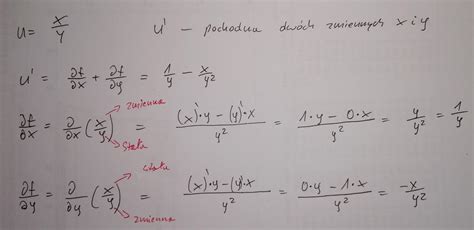 u = x/y    u' – pochodna dwóch zmiennych x i y
u' = ∂f/∂x + ∂f/∂y = 1/y − x/y²
zmienna
∂f/∂x = ∂/∂x (x/y) = ((x)'·y − (y)'·x)/y² = (1·y − 0·x)/y² = y/y² = 1/y
stała
stała
∂f/∂y = ∂/∂y (x/y) = ((x)'·y − (y)'·x)/y² = (0·y − 1·x)/y² = −x/y²
zmienna